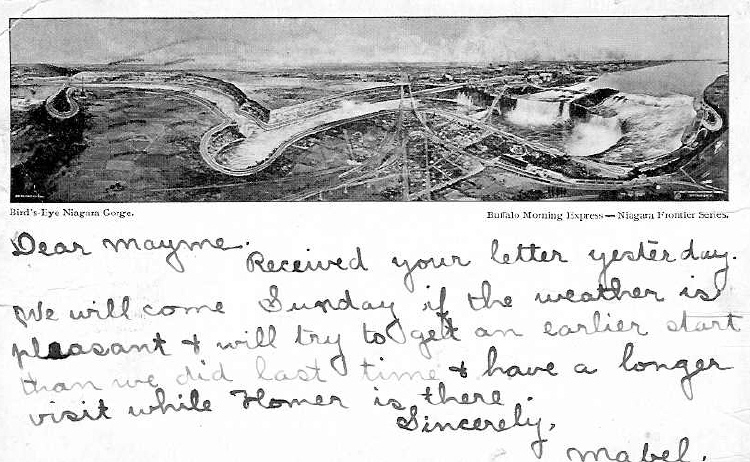 Bird's-Eye Niagara Gorge.
Buffalo Morning Express—Niagara Frontier Series.
Dear Mayme.
Received your letter yesterday.
We will come Sunday if the weather is
pleasant & will try to get an earlier start
than we did last time & have a longer
visit while Homer is there.
Sincerely,
Mabel.